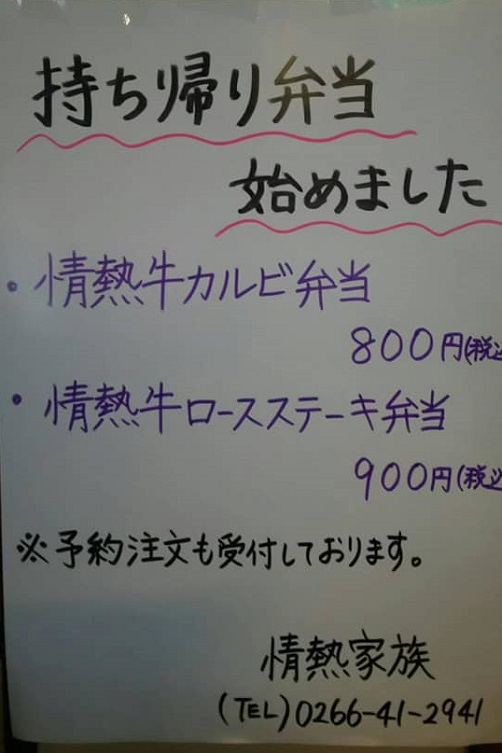 持ち帰り弁当
始めました
・情熱牛カルビ弁当
800円(税込
・情熱牛ロースステーキ弁当
900円(税込
※予約注文も受付しております。
情熱家族
(TEL)0266-41-2941